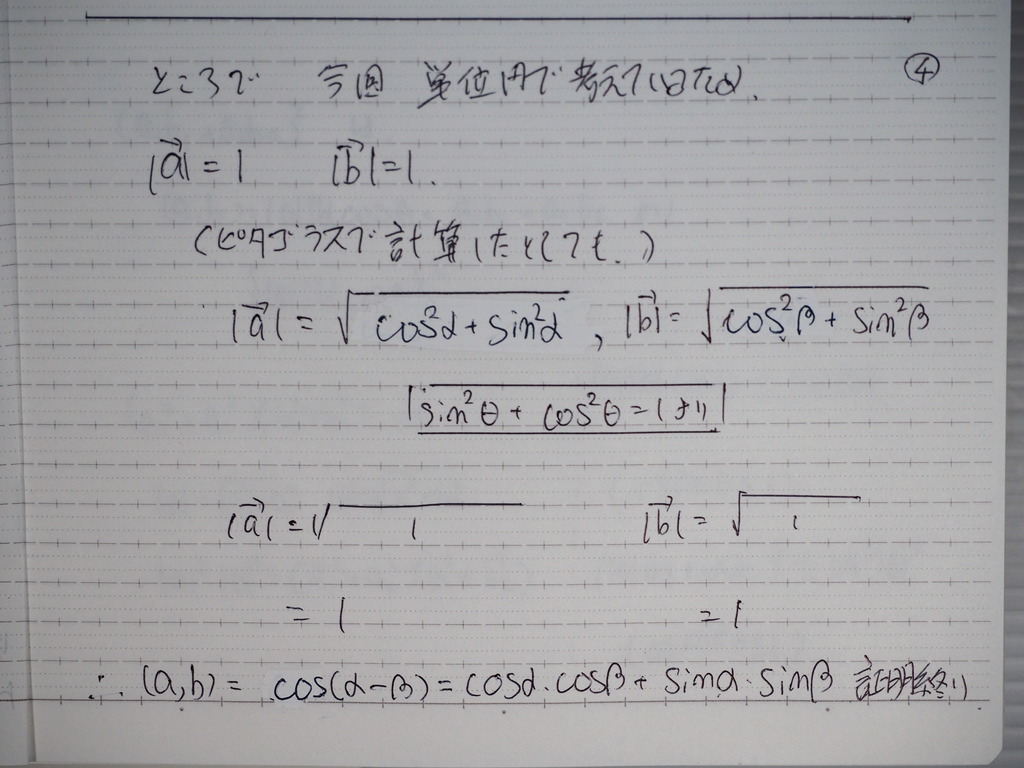 ところで 今回 単位円で考えているため、 ④
|a→| = 1 |b→| = 1.
(ピタゴラスで計算したとしても、)
|a→| = √(cos²α + sin²α) , |b→| = √(cos²β + sin²β)
sin²θ + cos²θ = 1 より
|a→| = √1 |b→| = √1
= 1 = 1
∴ (a,b) = cos(α-β) = cosα・cosβ + sinα・sinβ 証明終り